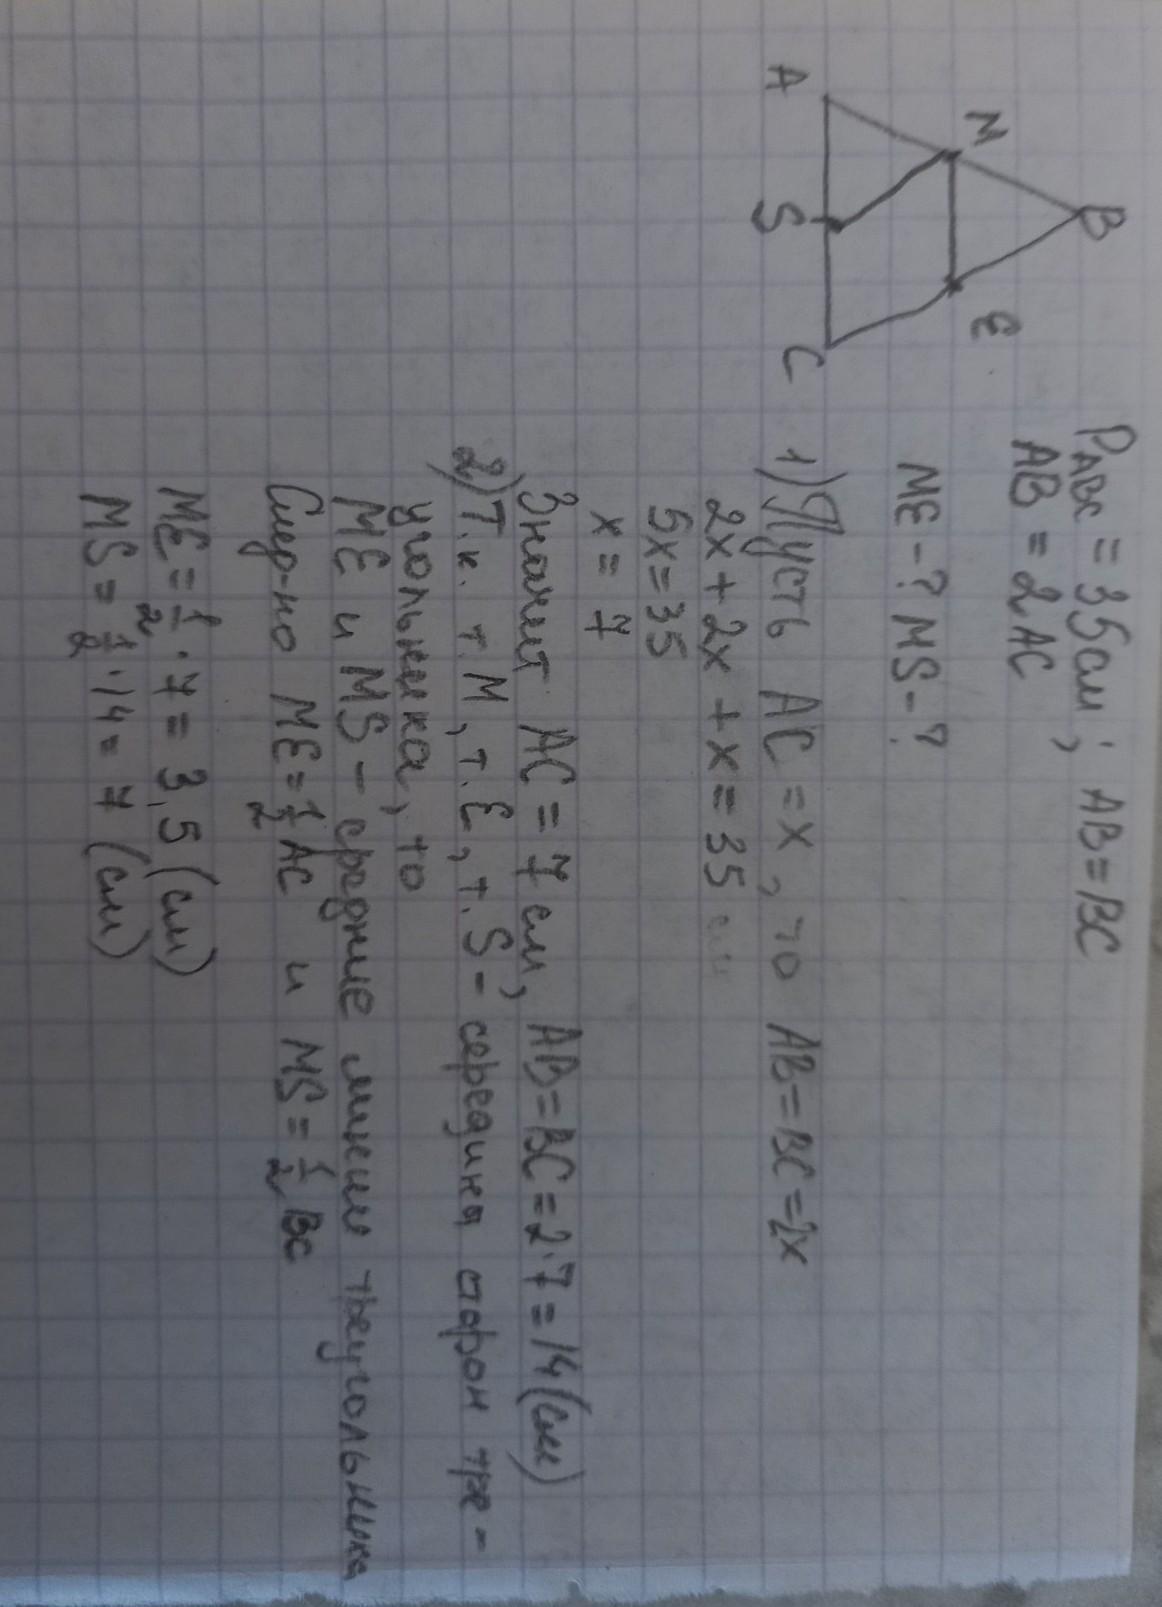 B
M
E
A
S
C
P_ABC = 35см; AB = BC
AB = 2AC
ME - ? MS - ?
1) Пусть AC = x, то AB = BC = 2x
2x + 2x + x = 35 см
5x = 35
x = 7
Значит AC = 7 см, AB = BC = 2·7 = 14 (см)
2) Т.к. т. M, т. E, т. S - середины сторон тре-
угольника, то
ME и MS - средние линии треугольника
След-но ME = 1/2 AC и MS = 1/2 BC
ME = 1/2 · 7 = 3,5 (см)
MS = 1/2 · 14 = 7 (см)